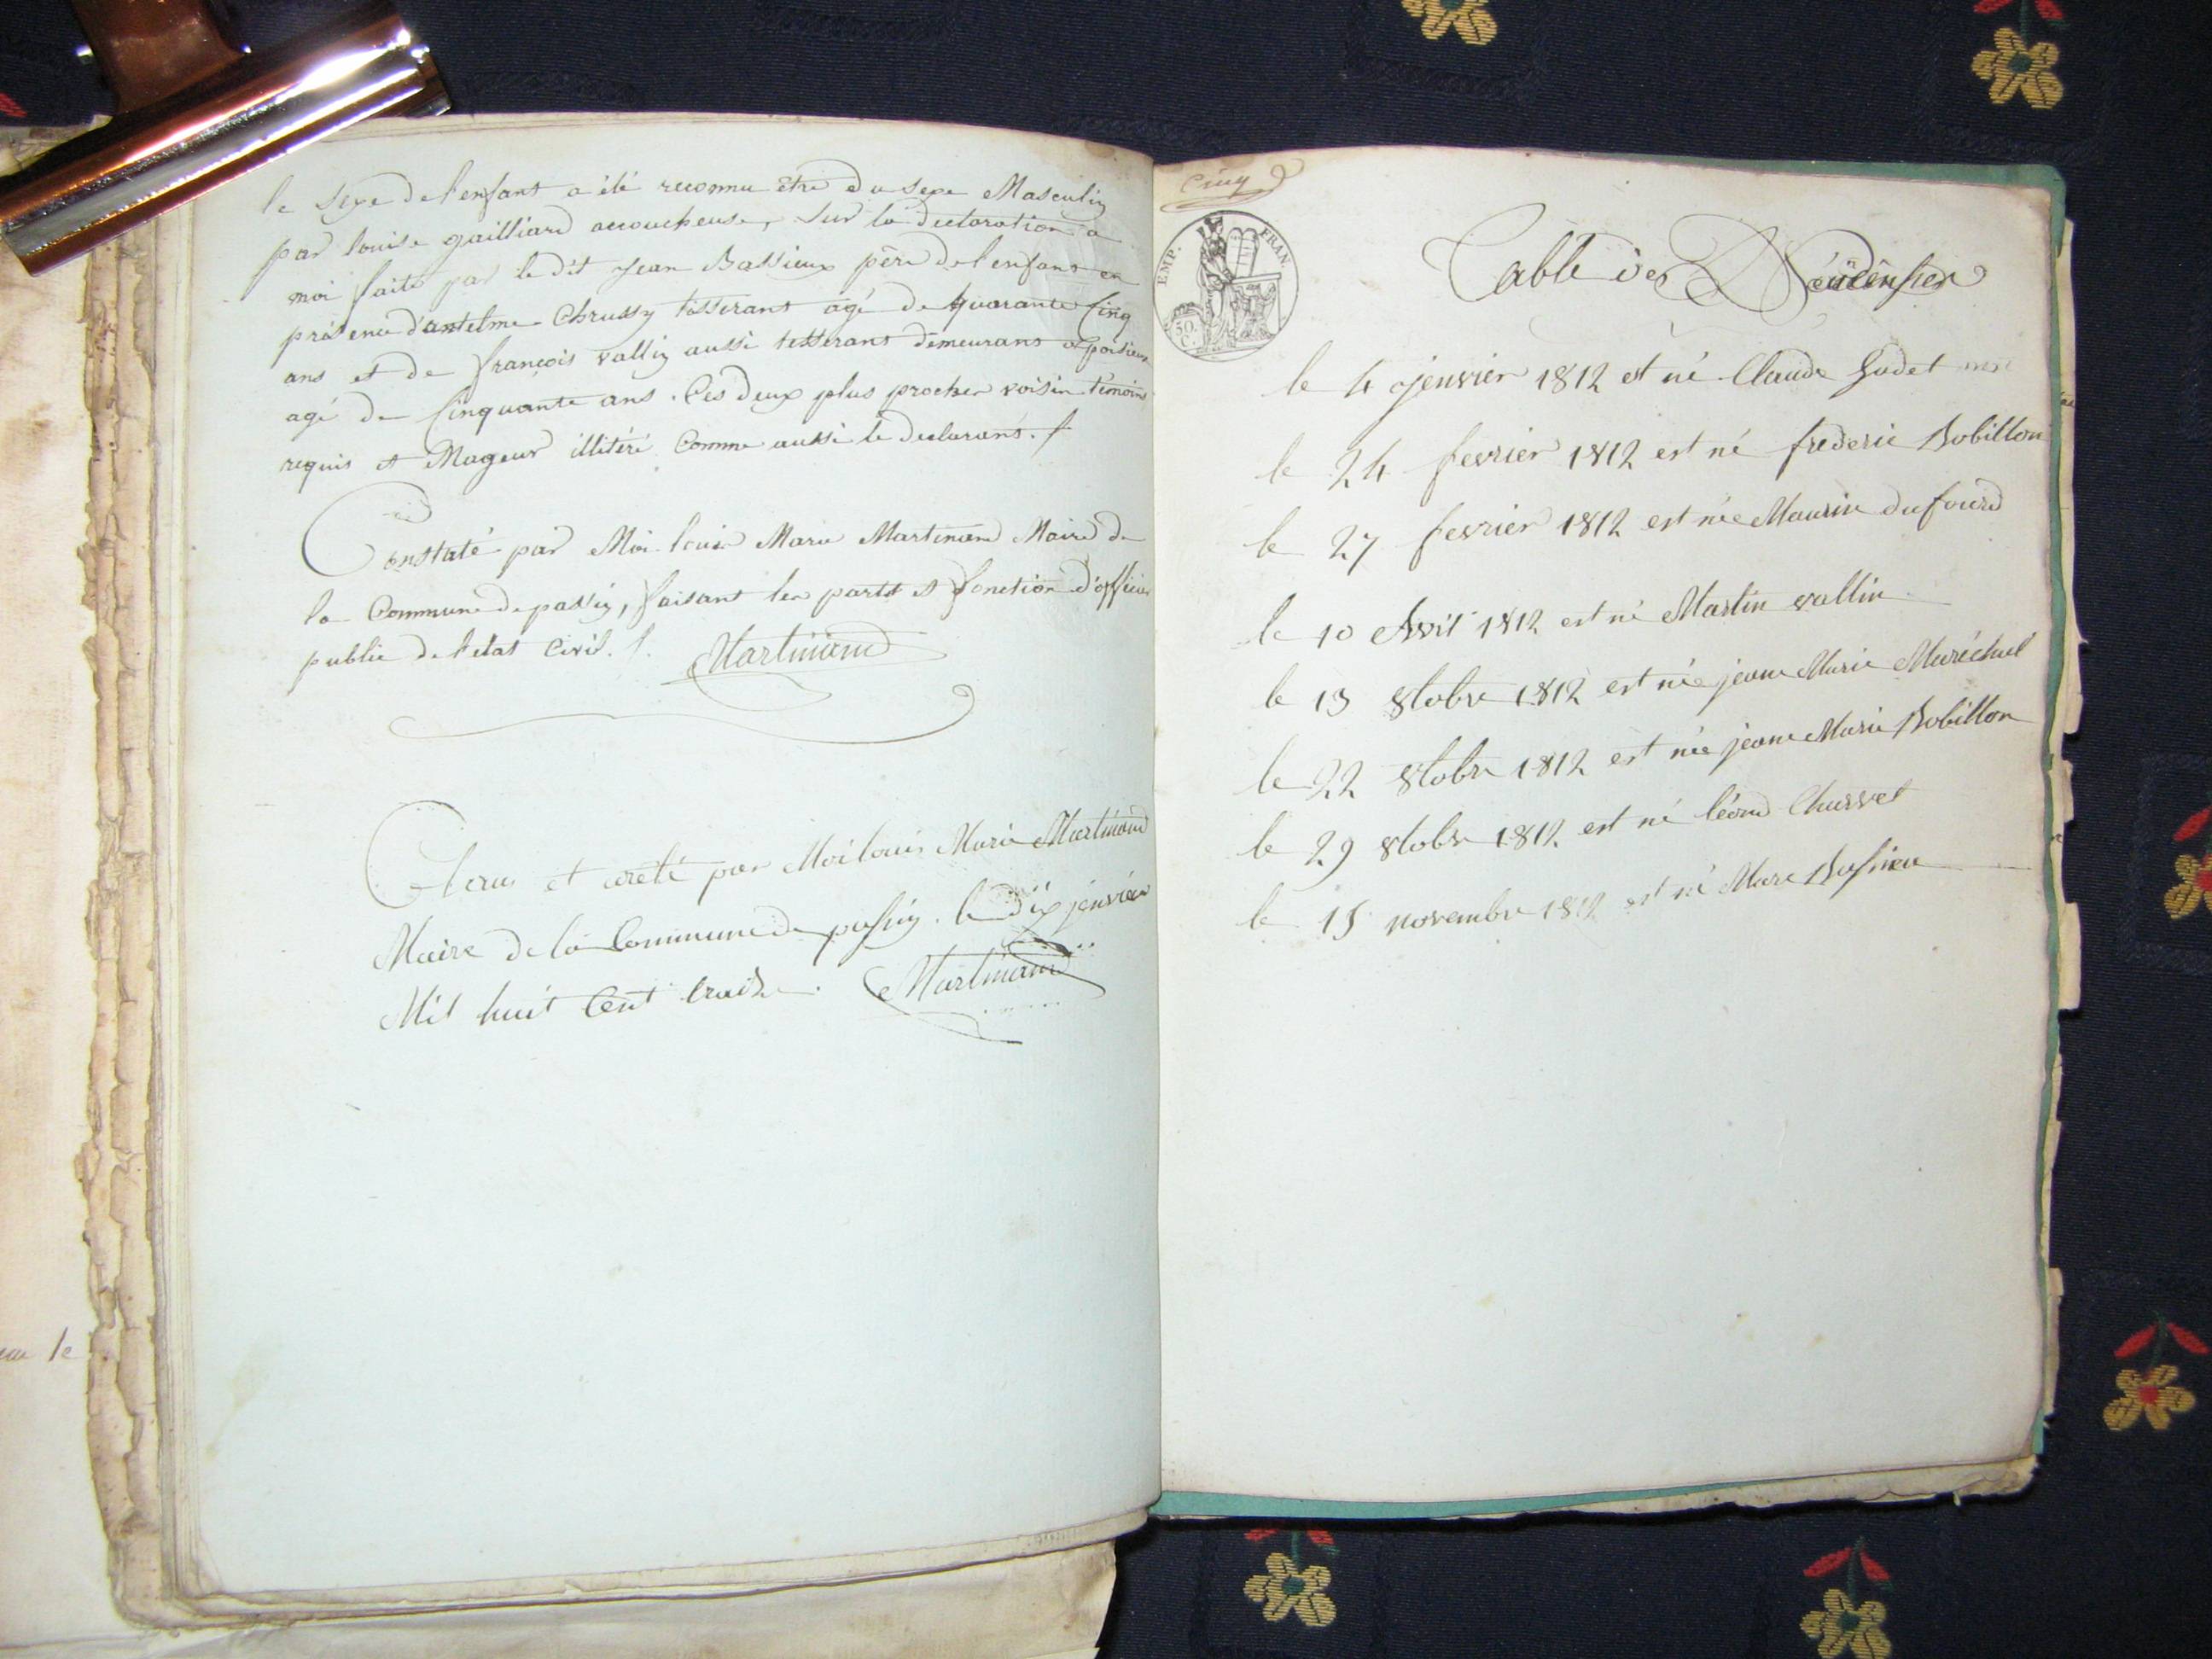 le sexe de l'enfant a été reconnu être du sexe Masculin
par louise gailliard accoucheuse, Sur la declaration a
moi faite par le dit Jean Bassieux père de l'enfant en
présence d'antelme Chrussy tisserant agé de quarante Cinq
ans et de françois vallin aussi tisserant demeurans a
agé de Cinquante ans. Ces deux plus procher voisin témoins
requis et Mageur illitéré Comme aussi le declarant.
Constaté par Moi louis Marie Martinand Maire de
la Commune de passin, faisant les fonction d'officier
public de l'état Civil. Martinand
Clerus et areté par Moi louis Marie Martinand
Maire de la Commune de passin. le dix jenvier
Mil huit Cent traize. Martinand
Cinq
EMP. FRAN
50. C.
Table des Naicénsses
le 4 jenvier 1812 et né Claude Godet
le 24 fevrier 1812 est né frederic Bobillon
le 27 fevrier 1812 est née Maurise dufourd
le 10 Avril 1812 est né Martin vallin
le 13 8tobre 1812 est née jeane Marie Maréchal
le 22 8tobre 1812 est née jeane Marie Bobillon
le 29 8tobre 1812 est né léond Charvet
le 15 novembre 1812 est né Marc Bassieu